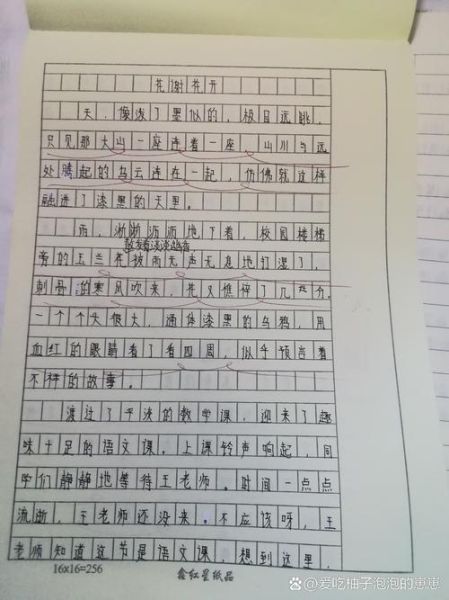 花谢花开
天，像泼了墨似的，极目远眺，
只见那大山一座连着一座，山川与远
处腾起的乌云连在一起，仿佛就这样
融进了漆黑的天里。
雨，淅淅沥沥地下着，校园楼梯
散发着淡淡幽香
旁的玉兰花被雨无声无息地打湿了，
刺骨的寒风吹来，花又憔悴了几分。
一个个头很大，通体漆黑的乌鸦，用
血红的眼睛看了看四周，似乎预言着
不祥的故事。
渡过了平淡的数学课，迎来了趣
味十足的语文课。上课铃声响起，同
学们静静地等待王老师。时间一点点
流逝，王老师还没来。不应该呀，王
老师知道这节是语文课，想到这里，
16x16=256
鑫红星纸品
@爱吃柚子泡泡的崽崽